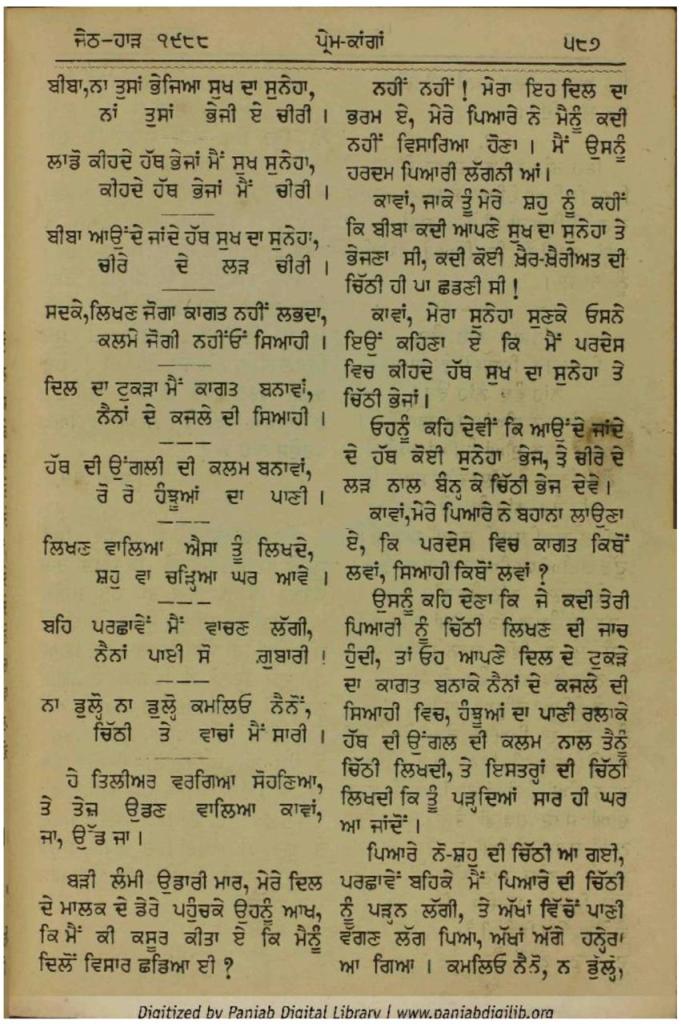 ਜੇਠ-ਹਾੜ ੧੯੮੮ ਪ੍ਰੇਮ-ਕਾਂਗਾਂ ੫੮੭
ਬੀਬਾ,ਨਾ ਤੁਸਾਂ ਭੇਜਿਆ ਸੁਖ ਦਾ ਸੁਨੇਹਾ,
ਨਾਂ ਤੁਸਾਂ ਭੇਜੀ ਏ ਚੀਰੀ ।
ਲਾਡੋ ਕੀਹਦੇ ਹੱਥ ਭੇਜਾਂ ਮੈਂ ਸੁਖ ਸੁਨੇਹਾ,
ਕੀਹਦੇ ਹੱਥ ਭੇਜਾਂ ਮੈਂ ਚੀਰੀ ।
ਬੀਬਾ ਆਉਂਦੇ ਜਾਂਦੇ ਹੱਥ ਸੁਖ ਦਾ ਸੁਨੇਹਾ,
ਚੀਰੇ ਦੇ ਲੜ ਚੀਰੀ ।
ਸਦਕੇ,ਲਿਖਣ ਜੋਗਾ ਕਾਗਤ ਨਹੀਂ ਲਭਦਾ,
ਕਲਮੇ ਜੋਗੀ ਨਹੀਂਓਂ ਸਿਆਹੀ ।
ਦਿਲ ਦਾ ਟੁਕੜਾ ਮੈਂ ਕਾਗਤ ਬਨਾਵਾਂ,
ਨੈਨਾਂ ਦੇ ਕਜਲੇ ਦੀ ਸਿਆਹੀ ।
ਹੱਥ ਦੀ ਉਂਗਲੀ ਦੀ ਕਲਮ ਬਨਾਵਾਂ,
ਰੋ ਰੋ ਹੰਝੂਆਂ ਦਾ ਪਾਣੀ ।
ਲਿਖਣ ਵਾਲਿਆ ਐਸਾ ਤੂੰ ਲਿਖਦੇ,
ਸ਼ਹੁ ਵਾ ਚੜ੍ਹਿਆ ਘਰ ਆਵੇ ।
ਬਹਿ ਪਰਛਾਵੇਂ ਮੈਂ ਵਾਚਣ ਲੱਗੀ,
ਨੈਨਾਂ ਪਾਈ ਸੋ ਗੁਬਾਰੀ !
ਨਾ ਡੁਲ੍ਹੋ ਨਾ ਡੁਲ੍ਹੋ ਕਮਲਿਓ ਨੈਨੋਂ,
ਚਿੱਠੀ ਤੇ ਵਾਚਾਂ ਮੈਂ ਸਾਰੀ ।
ਹੇ ਤਿਲੀਅਰ ਵਰਗਿਆ ਸੋਹਣਿਆ,
ਤੇ ਤੇਜ਼ ਉਡਣ ਵਾਲਿਆ ਕਾਵਾਂ,
ਜਾ, ਉੱਡ ਜਾ ।
ਬੜੀ ਲੰਮੀ ਉਡਾਰੀ ਮਾਰ, ਮੇਰੇ ਦਿਲ
ਦੇ ਮਾਲਕ ਦੇ ਡੇਰੇ ਪਹੁੰਚਕੇ ਉਹਨੂੰ ਆਖ,
ਕਿ ਮੈਂ ਕੀ ਕਸੂਰ ਕੀਤਾ ਏ ਕਿ ਮੈਨੂੰ
ਦਿਲੋਂ ਵਿਸਾਰ ਛਡਿਆ ਈ ?
ਨਹੀਂ ਨਹੀਂ ! ਮੇਰਾ ਇਹ ਦਿਲ ਦਾ
ਭਰਮ ਏ, ਮੇਰੇ ਪਿਆਰੇ ਨੇ ਮੈਨੂੰ ਕਦੀ
ਨਹੀਂ ਵਿਸਾਰਿਆ ਹੋਣਾ । ਮੈਂ ਉਸਨੂੰ
ਹਰਦਮ ਪਿਆਰੀ ਲੱਗਨੀ ਆਂ।
ਕਾਵਾਂ, ਜਾਕੇ ਤੂੰ ਮੇਰੇ ਸ਼ਹੁ ਨੂੰ ਕਹੀਂ
ਕਿ ਬੀਬਾ ਕਦੀ ਆਪਣੇ ਸੁਖ ਦਾ ਸੁਨੇਹਾ ਤੇ
ਭੇਜਣਾ ਸੀ, ਕਦੀ ਕੋਈ ਖ਼ੈਰ-ਖ਼ੈਰੀਅਤ ਦੀ
ਚਿੱਠੀ ਹੀ ਪਾ ਛਡਣੀ ਸੀ !
ਕਾਵਾਂ, ਮੇਰਾ ਸੁਨੇਹਾ ਸੁਣਕੇ ਓਸਨੇ
ਇਉਂ ਕਹਿਣਾ ਏ ਕਿ ਮੈਂ ਪਰਦੇਸ
ਵਿਚ ਕੀਹਦੇ ਹੱਥ ਸੁਖ ਦਾ ਸੁਨੇਹਾ ਤੇ
ਚਿੱਠੀ ਭੇਜਾਂ।
ਓਹਨੂੰ ਕਹਿ ਦੇਵੀਂ ਕਿ ਆਉਂਦੇ ਜਾਂਦੇ
ਦੇ ਹੱਥ ਕੋਈ ਸੁਨੇਹਾ ਭੇਜ, ਤੇ ਚੀਰੇ ਦੇ
ਲੜ ਨਾਲ ਬੰਨ੍ਹ ਕੇ ਚਿੱਠੀ ਭੇਜ ਦੇਵੇ।
ਕਾਵਾਂ,ਮੇਰੇ ਪਿਆਰੇ ਨੇ ਬਹਾਨਾ ਲਾਉਣਾ
ਏ, ਕਿ ਪਰਦੇਸ ਵਿਚ ਕਾਗਤ ਕਿਥੋਂ
ਲਵਾਂ, ਸਿਆਹੀ ਕਿਥੋਂ ਲਵਾਂ ?
ਉਸਨੂੰ ਕਹਿ ਦੇਣਾ ਕਿ ਜੇ ਕਦੀ ਤੇਰੀ
ਪਿਆਰੀ ਨੂੰ ਚਿੱਠੀ ਲਿਖਣ ਦੀ ਜਾਚ
ਹੁੰਦੀ, ਤਾਂ ਓਹ ਆਪਣੇ ਦਿਲ ਦੇ ਟੁਕੜੇ
ਦਾ ਕਾਗਤ ਬਨਾਕੇ ਨੈਨਾਂ ਦੇ ਕਜਲੇ ਦੀ
ਸਿਆਹੀ ਵਿਚ, ਹੰਝੂਆਂ ਦਾ ਪਾਣੀ ਰਲਾਕੇ
ਹੱਥ ਦੀ ਉਂਗਲ ਦੀ ਕਲਮ ਨਾਲ ਤੈਨੂੰ
ਚਿੱਠੀ ਲਿਖਦੀ, ਤੇ ਇਸਤਰ੍ਹਾਂ ਦੀ ਚਿੱਠੀ
ਲਿਖਦੀ ਕਿ ਤੂੰ ਪੜ੍ਹਦਿਆਂ ਸਾਰ ਹੀ ਘਰ
ਆ ਜਾਂਦੋਂ ।
ਪਿਆਰੇ ਨੌ-ਸ਼ਹੁ ਦੀ ਚਿੱਠੀ ਆ ਗਈ,
ਪਰਛਾਵੇਂ ਬਹਿਕੇ ਮੈਂ ਪਿਆਰੇ ਦੀ ਚਿੱਠੀ
ਨੂੰ ਪੜ੍ਹਨ ਲੱਗੀ, ਤੇ ਅੱਖਾਂ ਵਿੱਚੋਂ ਪਾਣੀ
ਵੱਗਣ ਲੱਗ ਪਿਆ, ਅੱਖਾਂ ਅੱਗੇ ਹਨ੍ਹੇਰਾ
ਆ ਗਿਆ । ਕਮਲਿਓ ਨੈਨੋਂ, ਨ ਡੁੱਲ੍ਹੋ,
Digitized by Panjab Digital Library | www.panjabdigilib.org